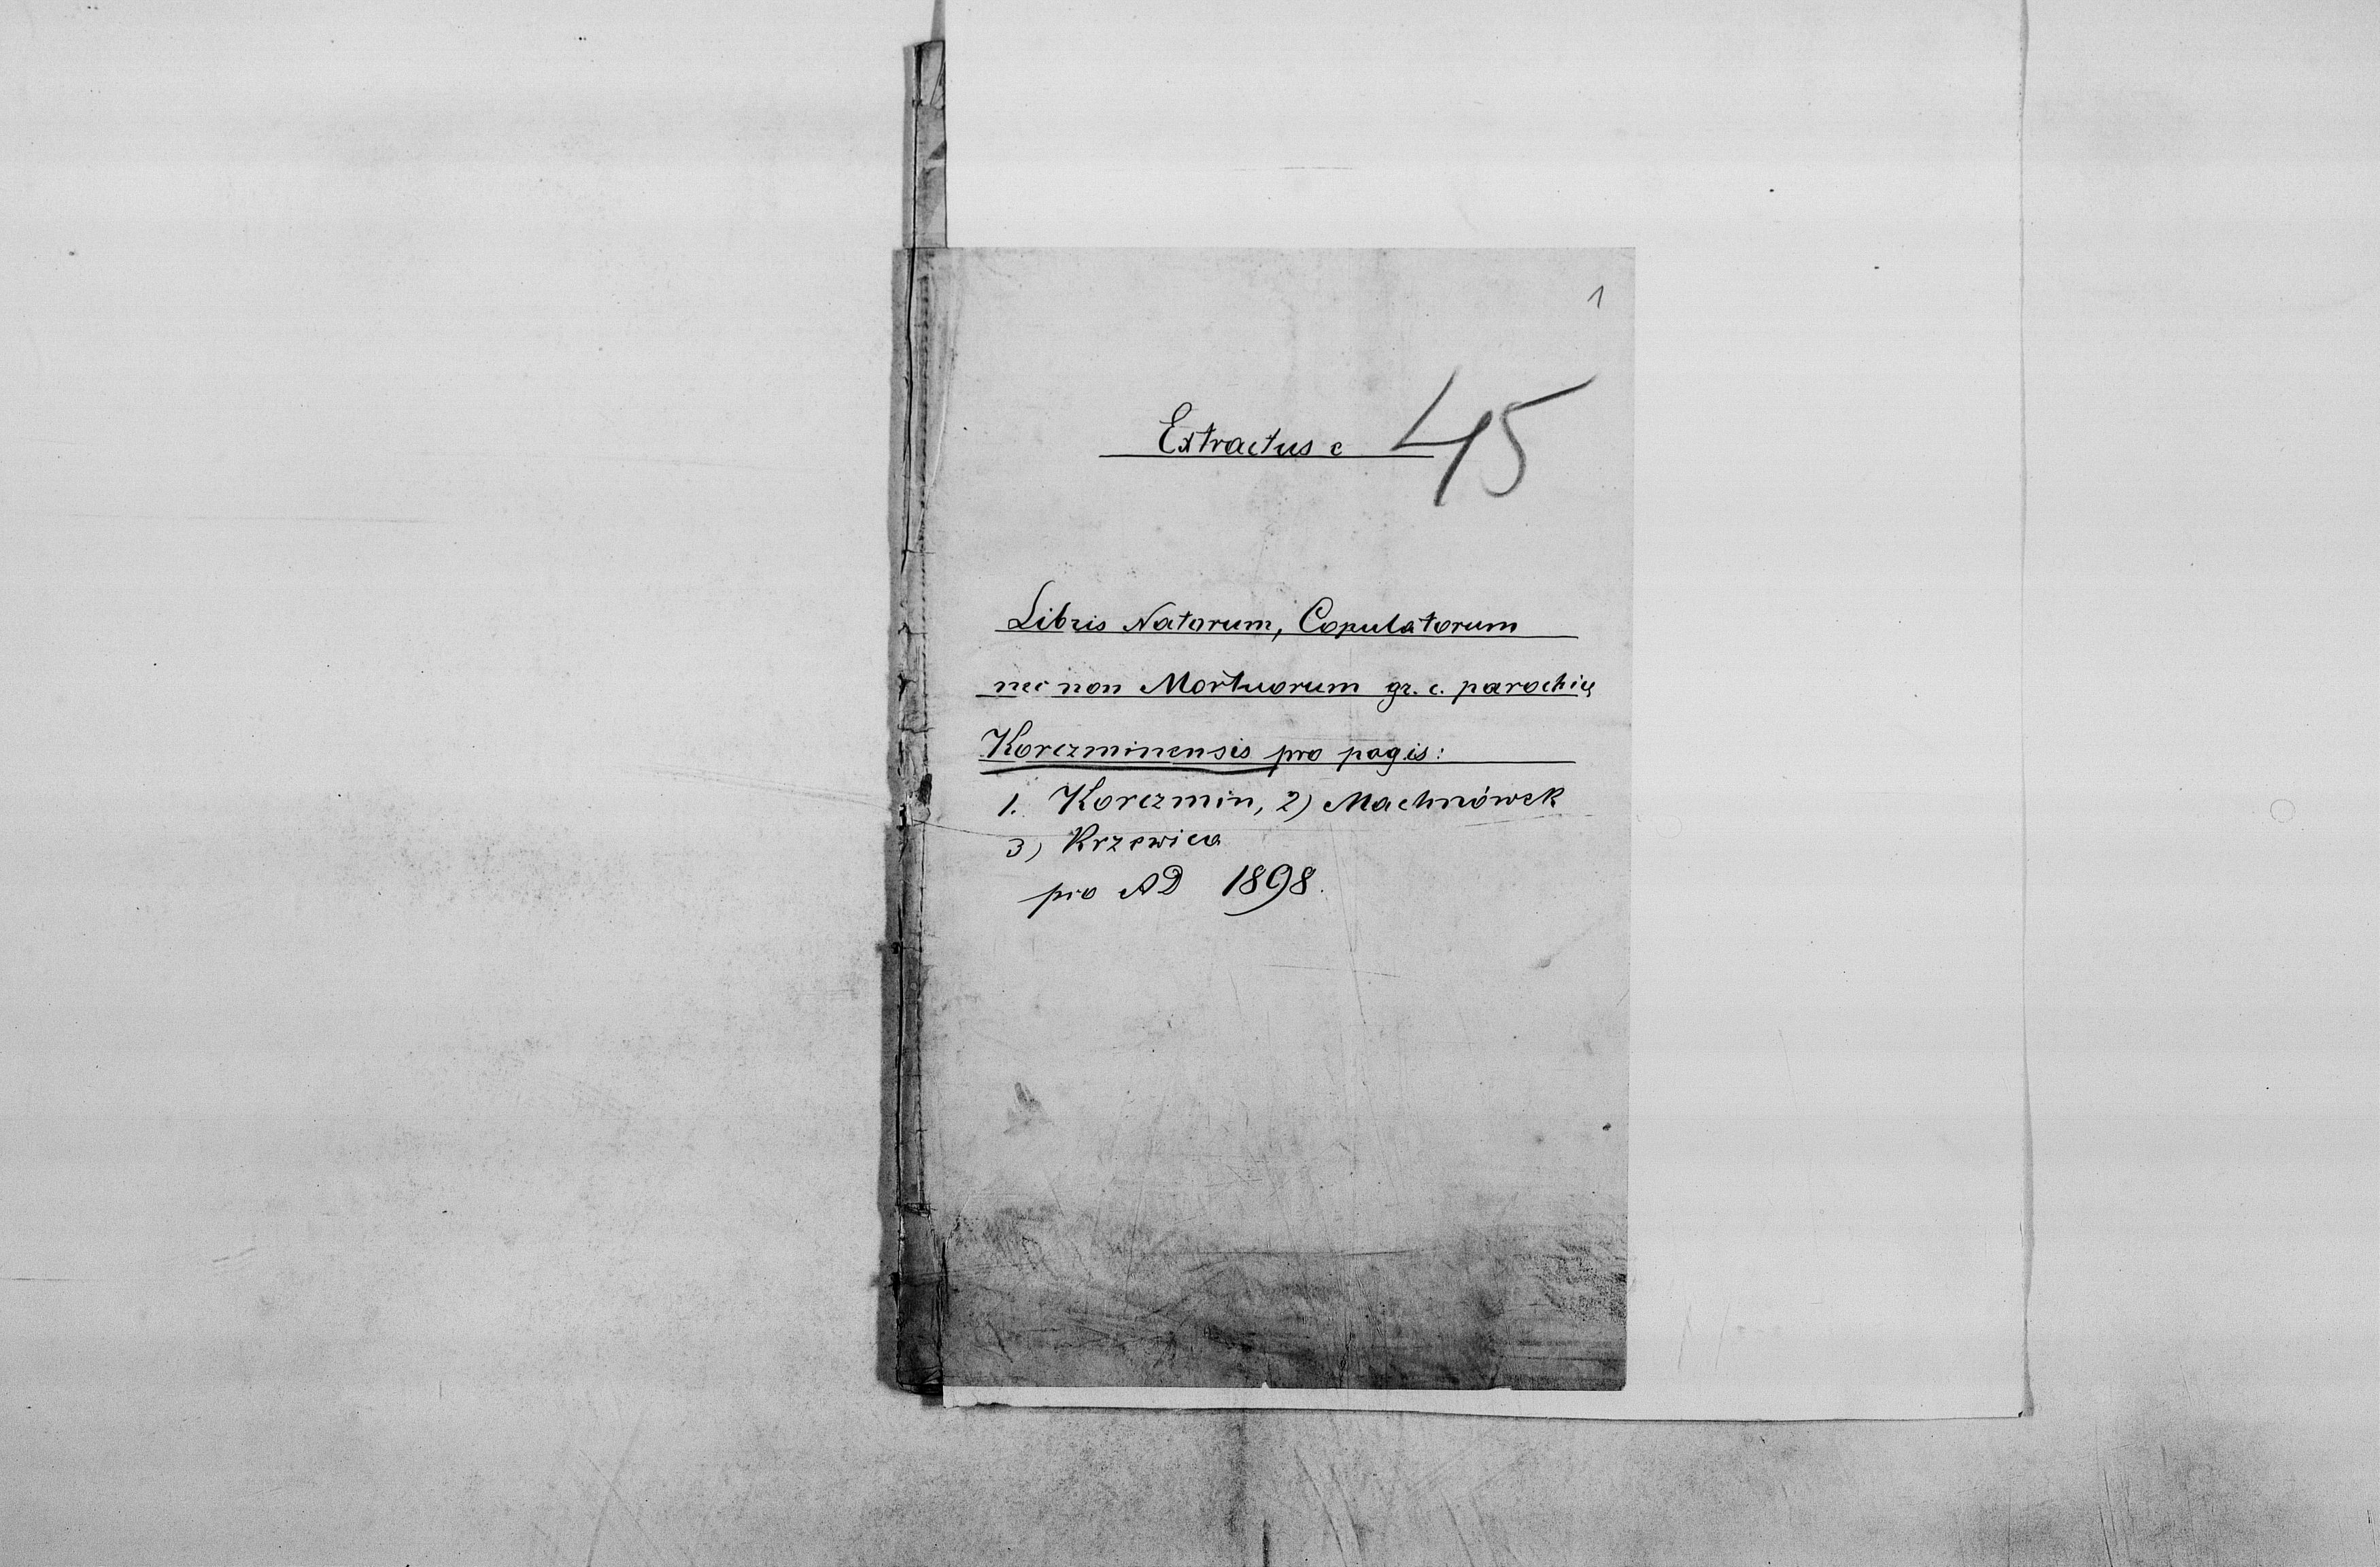 1
Extractus e 45
Libris Natorum, Copulatorum
nec non Mortuorum gr. c. parochię
Korczminensis pro pagis:
1. Korczmin, 2) Machnówek
3) Krzewica
pro AD 1898.